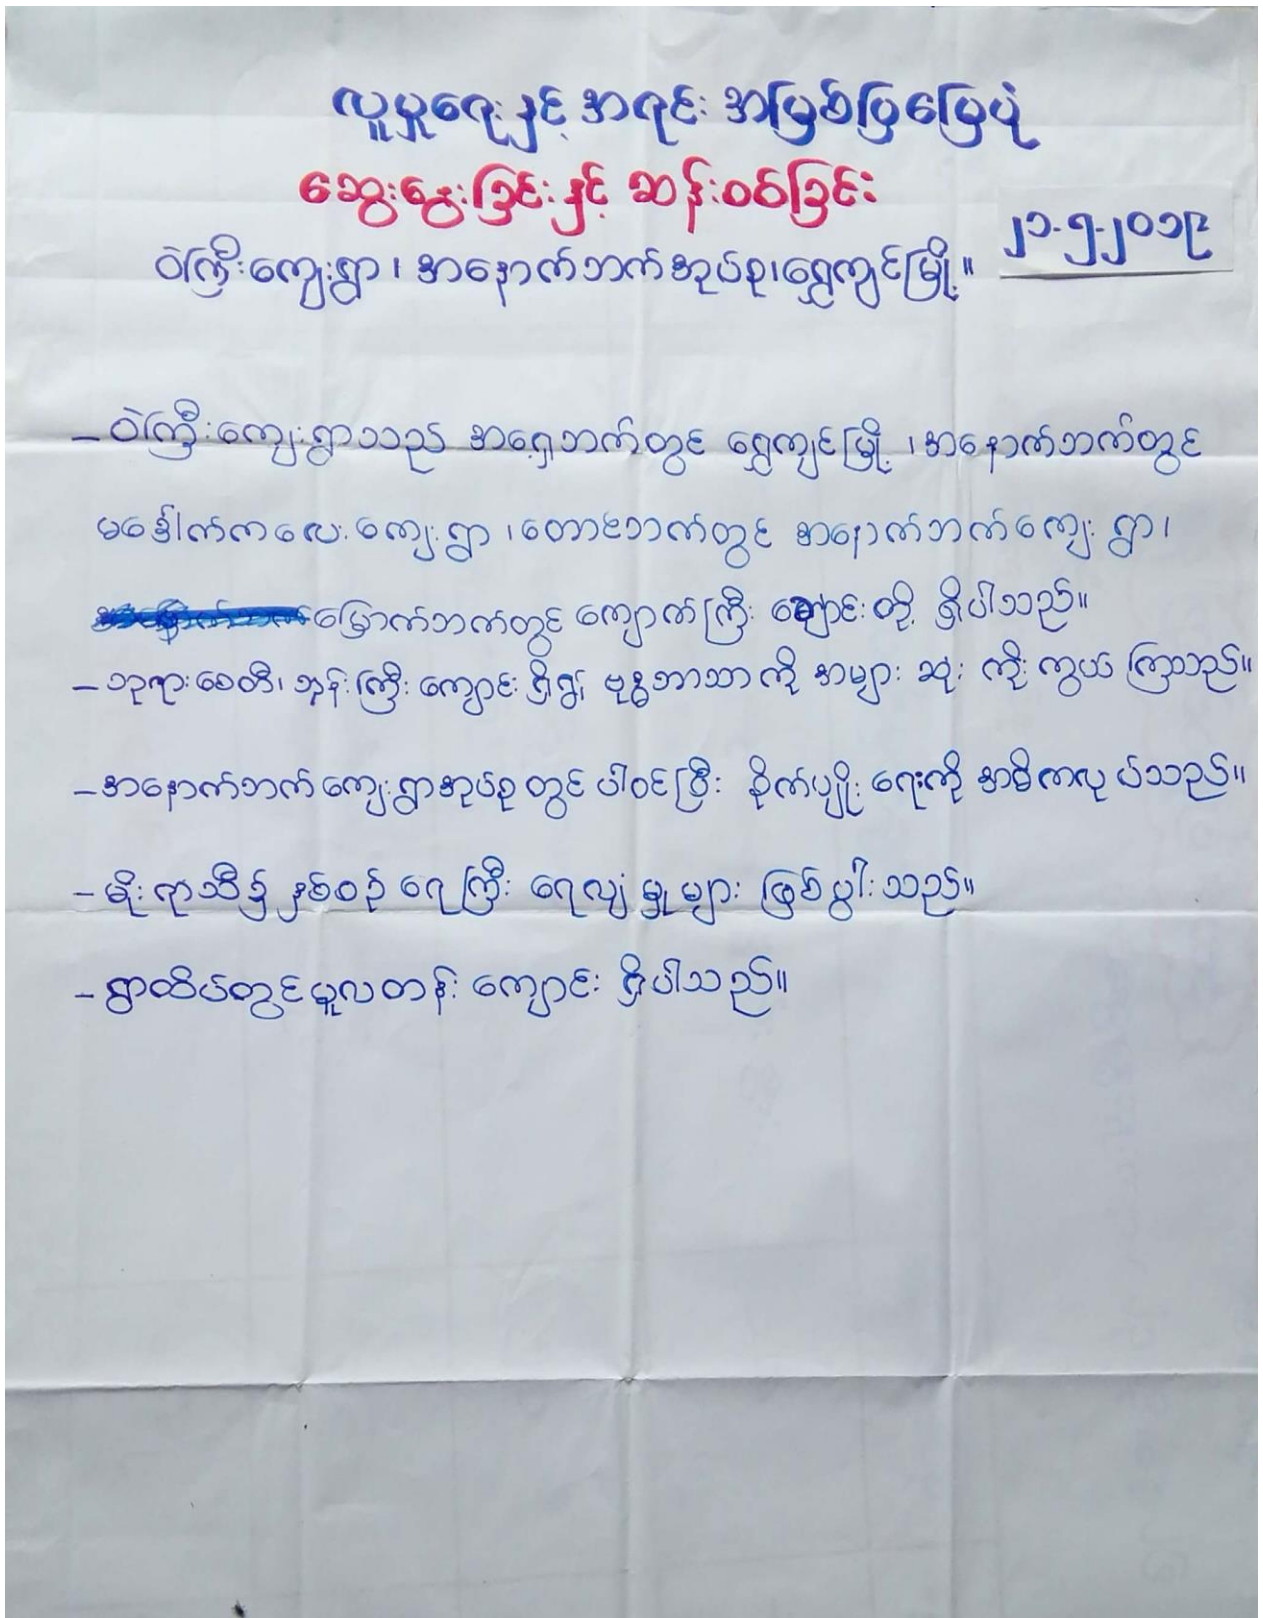 လူမှုရေးနှင့် အရင်း အမြစ်ပြမြေပုံ
ဆွေးနွေးခြင်းနှင့် ဆန်းစစ်ခြင်း
၂၁-၅-၂၀၁၉
ဝဲကြီးကျေးရွာ၊ အနောက်ဘက်အုပ်စု၊ရွှေကျင်မြို့။
- ဝဲကြီးကျေးရွာသည် အရှေ့ဘက်တွင် ရွှေကျင်မြို့ ၊အနောက်ဘက်တွင်
မဒေါက်ကလေး ကျေးရွာ ၊တောင်ဘက်တွင် အနောက်ဘက်ကျေးရွာ၊
မြောက်ဘက်တွင် ကျောက်ကြီး ချောင်းတို့ ရှိပါသည်။
- ဘုရားစေတီ၊ ဘုန်းကြီး ကျောင်း ရှိ၍ ဗုဒ္ဓဘာသာကို အများ ဆုံး ကိုးကွယ် ကြသည်။
- အနောက်ဘက်ကျေးရွာအုပ်စုတွင် ပါဝင်ပြီး စိုက်ပျိုး ရေးကို အဓိကလုပ်သည်။
- မိုးရာသီ၌ နှစ်စဉ် ရေကြီး ရေလျှံ မှု့များ ဖြစ်ပွါးသည်။
- ရွာထိပ်တွင်မူလတန်း ကျောင်း ရှိပါသည်။